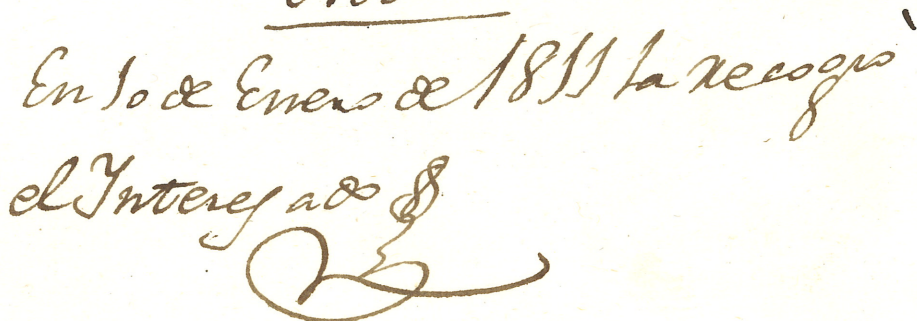 En 10 de Enero de 1811 la recogió
el Interesado